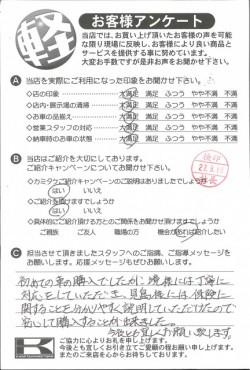 軽
お客様アンケート
当店では、お買い上げ頂いたお客様の声を可能
な限り現場に反映し、お客様により良い商品と
サービスを提供する事に努めています。
大変お手数ですが是非お声をお聞かせ下さい。
A 当店を実際にご利用になった印象をお聞かせ下さい。
◇店の印象 大満足 満足 ふつう やや不満 不満
◇店内・展示場の清掃 大満足 満足 ふつう やや不満 不満
◇お車の品揃え 大満足 満足 ふつう やや不満 不満
◇営業スタッフの対応 大満足 満足 ふつう やや不満 不満
◇納車時のお車の状態 大満足 満足 ふつう やや不満 不満
B 当店はご紹介を大切にしております。
ご紹介キャンペーンについてお聞かせ下さい。
◇カミタケご紹介キャンペーンのご説明はありましたでしょうか
はい いいえ
はい いいえ
◇具体的にご紹介頂ける方とのご関係をお聞かせ頂けますでしょうか
ご親族 ご友人 職場の方 機会があれば紹介したい
C 担当させて頂きましたスタッフへのご指摘、ご指導メッセージを
お願いします。応援メッセージもぜひお願いします。
初めての車の購入でしたが、境様には丁寧に
対応をしていただき、見島様には、保険に
関することを分かりやすく説明していただけたので
安心して購入することが出来ました。
今後とも宜しくお願い致します。
ご協力に心よりお礼を申し上げます。
今後とも宜しくお引き立てご愛顧の程お願い申し上げます。
またのご来店を心からお待ちしております。